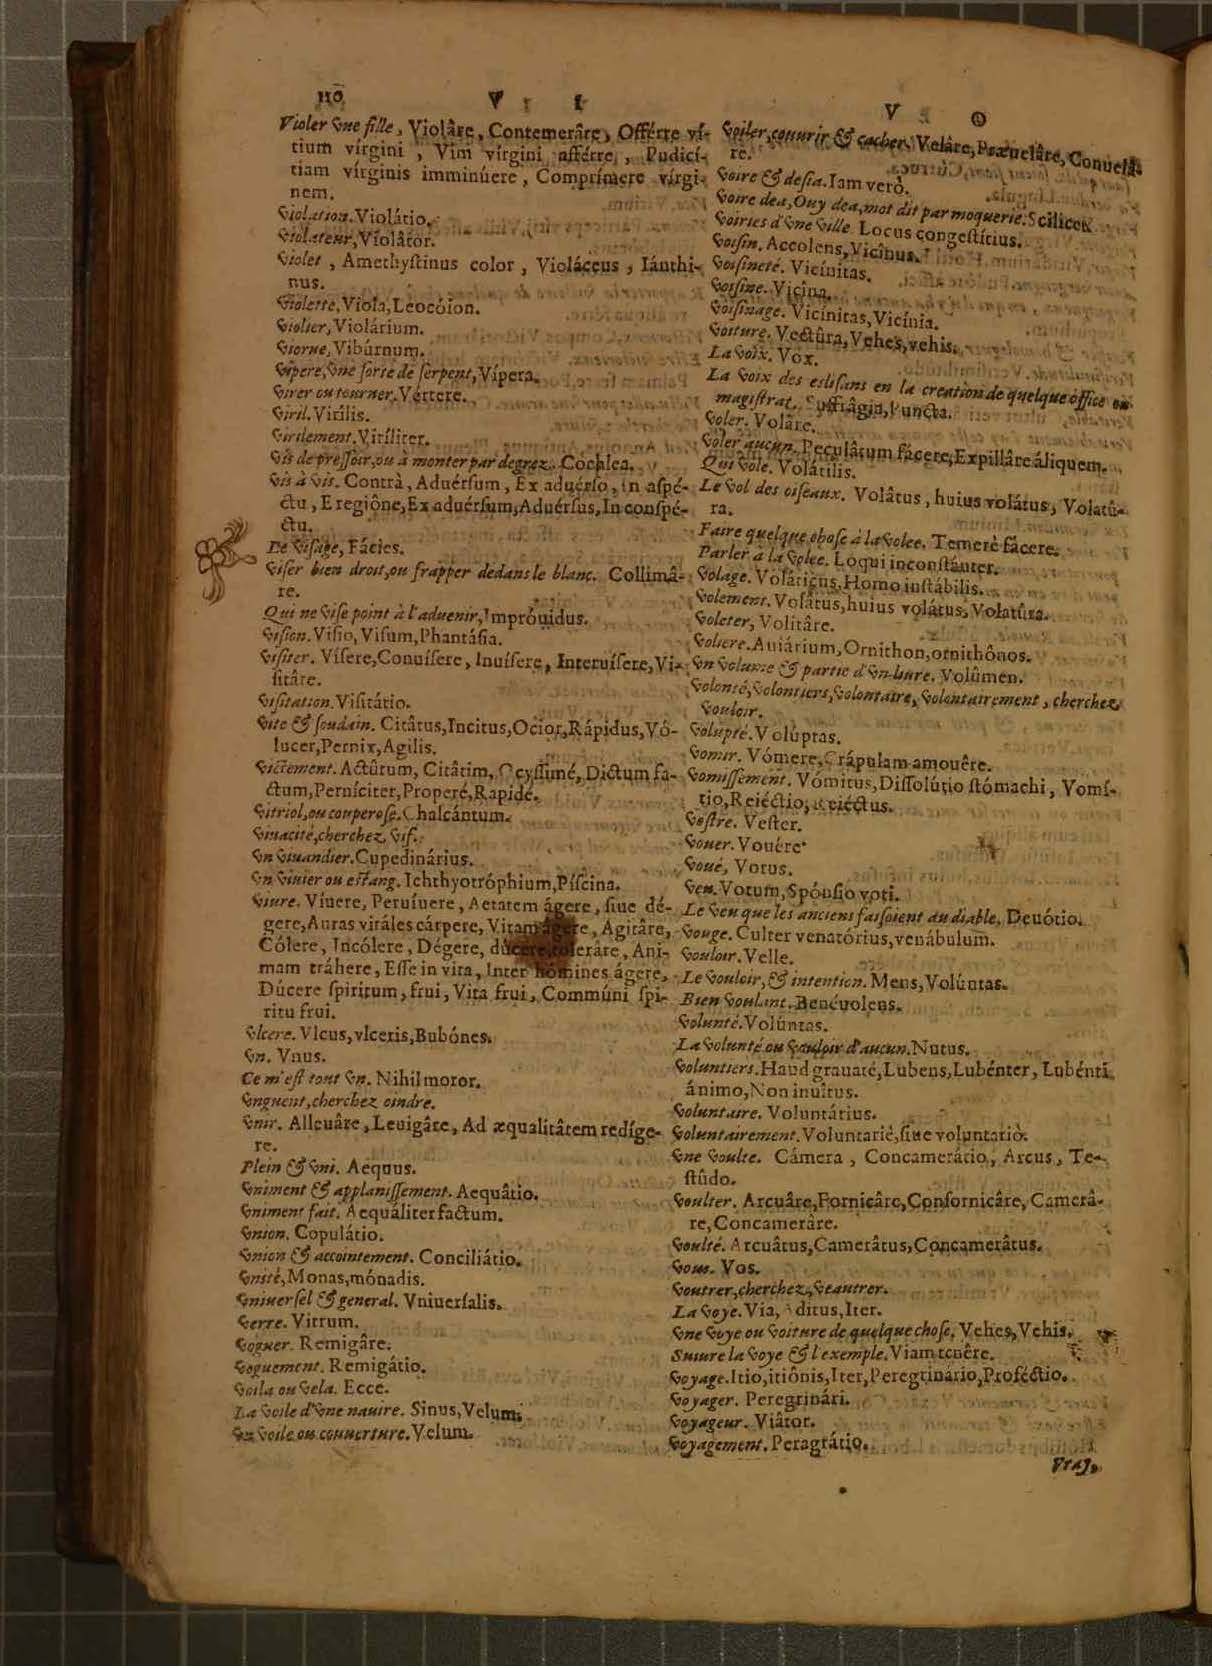 110
V I
Violer vne fille, Violâre, Contemerâre, Offérre ví-
tium vírgini, Vim vírgini afférre, Pudicí-
tiam vírginis imminúere, Comprímere vírgi-
nem.
Violation. Violátio.
Violateur, Violâtor.
Violet, Amethyſtinus color, Violáceus, Iánthi-
nus.
Violette, Viola, Leocóion.
Violier, Violárium.
Viorne, Vibúrnum.
Vipere, vne ſorte de ſerpent, Vípera.
Virer ou tourner. Vértere.
Viril. Virílis.
Virilement. Viríliter.
Vis de preſſoir, ou à monter par degrez. Cochlea.
Vis à vis. Contrà, Aduérſum, Ex aduérſo, in aſpé-
ctu, E regiône, Ex aduérſum, Aduérſus, In conſpé-
ctu.
Le viſage, Fácies.
Viſer bien droit, ou frapper dedans le blanc. Collimâ-
re.
Qui ne viſe point à l'aduenir, Impróuidus.
Viſion. Viſio, Viſum, Phantáſia.
Viſiter. Víſere, Conuíſere, Inuíſere, Interuíſere, Vi-
ſitâre.
Viſitation. Viſitátio.
Vite & ſoudain. Citâtus, Incitus, Ocior, Rápidus, Vó-
lucer, Pernix, Agilis.
Victement. Actûtum, Citâtim, Ocyſſimé, Dictum fa-
ctum, Perníciter, Properé, Rapidé.
Vitriol, ou couperoſe. Chalcántum.
Viuacité, cherchez, Vif.
Vn viuandier. Cupedinárius.
Vn viuier ou eſtang. Ichthyotróphium, Piſcina.
Viure. Víuere, Peruíuere, Aetatem ágere, ſiue dé-
gere, Auras vitáles cárpere, Vitam ágere, Agitâre,
Cólere, Incólere, Dégere, dúcere, tolerâre, Ani-
mam tráhere, Eſſe in vita, Inter hómines ágere,
Dúcere ſpiritum, frui, Vita frui, Commúni ſpi-
ritu frui.
Vlcere. Vlcus, vlceris, Bubónes.
Vn. Vnus.
Ce m'eſt tout vn. Nihil moror.
Vnguent, cherchez oindre.
Vnir. Alleuâre, Leuigâre, Ad æqualitâtem redíge-
re.
Plein & vni. Aequus.
Vniment & applaniſſement. Aequâtio.
Vniment fait. Aequáliter factum.
Vnion. Copulátio.
Vnion & accointement. Conciliátio.
Vnité, Monas, mónadis.
Vniuerſel & general. Vniuerſalis.
Verre. Vitrum.
Voguer. Remigâre.
Voguement. Remigátio.
Voila ou vela. Ecce.
La voile d'vne nauire. Sinus, Velum.
Vn voile ou couuerture. Velum.
V O
Voiler, couurir & cacher. Velâre, Præuelâre, Conuelâ-
re.
Voire & deſia. Iam verò.
Voire dea, Ouy dea, mot dit par moquerie. Scilicet.
Voiries d'vne ville. Locus congeſtítius.
Voiſin. Accolens, Vicînus.
Voiſineté. Vicínitas.
Voiſine. Vicîna.
Voiſinage. Vicínitas, Vicínia.
Voiture. Vectûra, Vehes, vehis.
La voix. Vox.
La voix des esliſans en la creation de quelque office ou
magiſtrat. Suffrâgia, Puncta.
Voler. Volâre.
Voler aucun. Peculâtum fácere, Expillâre áliquem.
Qui vole. Volátilis.
Le vol des oiſeaux. Volâtus, huius volátus, Volatû-
ra.
Faire quelque choſe à la volee. Temerè fácere.
Parler à la volee. Loqui inconſtánter.
Volage. Voláticus, Homo inſtábilis.
Volement. Volâtus, huius volátus, Volatûra.
Voleter, Volitâre.
Voliere. Auiárium, Ornithon, ornithônos.
Vn volume & partie d'vn liure. Volûmen.
Volonté, volontiers, volontaire, volontairement, cherchez
vouloir.
Volupté. Volúptas.
Vomir. Vómere, Crápulam amouêre.
Vomiſſement. Vómitus, Diſſolútio ſtómachi, Vomí-
tio, Reiéctio, Reiéctus.
Voſtre. Veſter.
Vouer. Vouére
Voué, Votus.
Veu. Votum, Spónſio voti.
Le veu que les anciens faiſoient au diable, Deuótio.
Vouge. Culter venatórius, venábulum.
Vouloir. Velle.
Le vouloir, & intention. Mens, Volúntas.
Bien voulant. Benéuolens.
Volunté. Volúntas.
La volunté ou vouloir d'aucun. Nutus.
Voluntiers. Haud grauaté, Lubens, Lubénter, Lubénti
ánimo, Non inuîtus.
Voluntaire. Voluntárius.
Voluntairement. Voluntariè, ſiue voluntariò.
Vne voulte. Cámera, Concamerâtio, Arcus, Te-
ſtûdo.
Voulter. Arcuâre, Fornicâre, Confornicâre, Camerâ-
re, Concamerâre.
Voulté. Arcuâtus, Camerâtus, Concamerâtus.
Vous. Vos.
Voutrer, cherchez, Veautrer.
La voye. Via, Aditus, Iter.
Vne voye ou voiture de quelque choſe. Vehes, Vehis.
Suiure la voye & l'exemple. Viam tenêre.
Voyage. Itio, itiônis, Iter, Peregrinátio, Proféctio.
Voyager. Peregrinári.
Voyageur. Viâtor.
Voyagement. Peragrátio.
Vray,